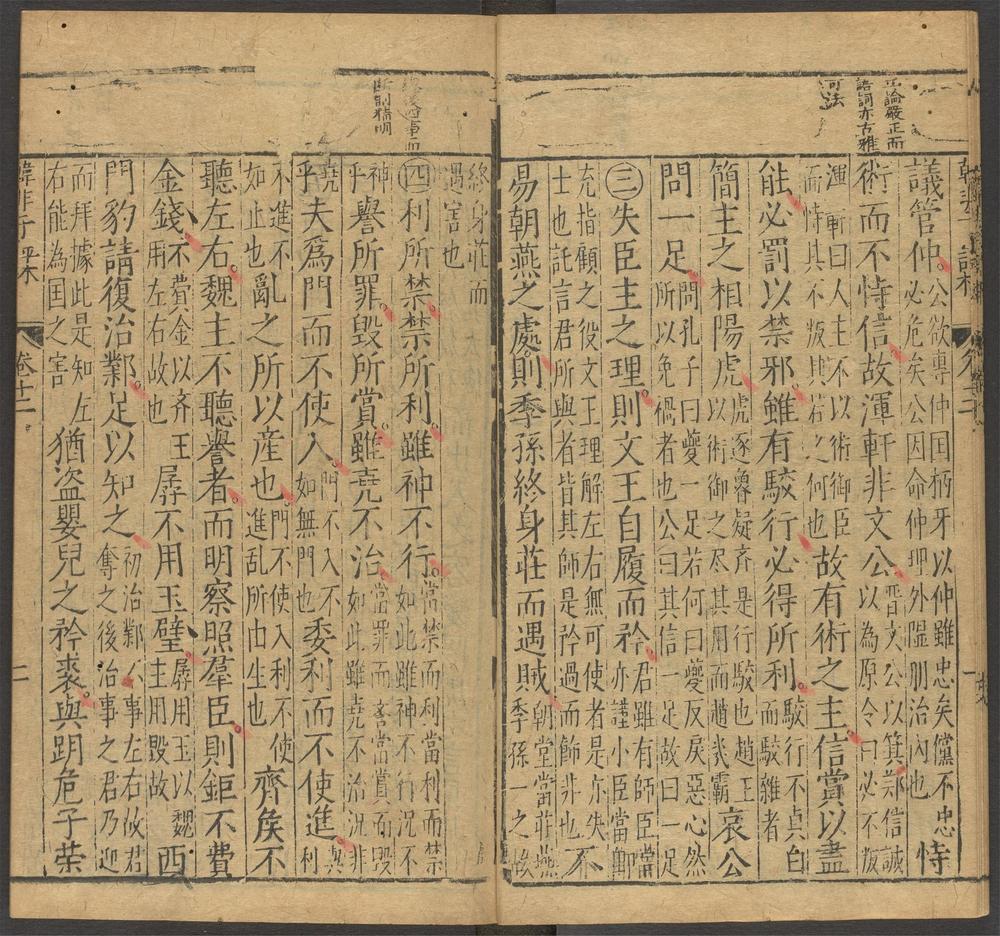 立論嚴正而
語詞亦古雅
可法
議管仲。公欲專仲国柄牙以仲雖忠矣儻不忠必危矣公因命仲理外隰朋治内也恃
術而不恃信故渾軒非文公晋文公以箕鄭信誠以為原令曰必不叛
渾軒曰人主不以術御臣而恃其不叛其若之何也故有術之主信賞以盡
能必罰以禁邪雖有駮行必得所利。駮行不貞白而駮雜者
簡主之相陽虎虎逐魯疑齐是行駮也趙王以術御之尽其用而趙幾霸哀公
問一足問孔子曰夔一足若何曰夔反戾惡心然所以免禍者也公曰其信一足故曰一足
㊂失臣主之理則文王自履而矜君雖有師臣當亦謹小臣當勳
充指顧之役文王理解左右無可使者是亦失士也託言君所與者皆其師是矜過而飾非也不
易朝燕之處則季孫終身莊而遇賊朝堂當莊燕季孫一之故
事而
斷制精明
終身莊而遇害也
㊃利所禁禁所利雖神不行當禁而利當利而禁如此雖神不行况不
神乎譽所罪毀所賞雖堯不治當罪而譽當賞而毀如此雖堯不治況非
堯乎夫為門而不使入門不入不如無門也委利而不使進與利
不進不如止也亂之所以産也。門不使入利不使進乱所由生也齊矦不
聽左右。魏主不聽譽者。而明察照羣臣。則鉅不費
金錢不費金以齐王用左右故也孱不用玉璧孱用玉以魏主用毀故西
門豹請復治鄴。足以知之初治鄴不事左右故君奪之後治事之君乃迎
而拜據此是知左右能為国之害猶盜嬰兒之矜裘。與跀危子荣
韓非子平木
卷十二
二